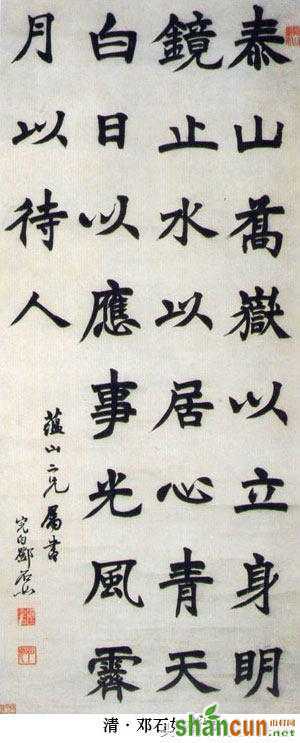 泰山喬嶽以立身明
鏡止水以居心青天
白日以應事光風霽
月以待人
蘊山二兄屬書
完白鄧石如
清·邓石
山村网
shancun.net